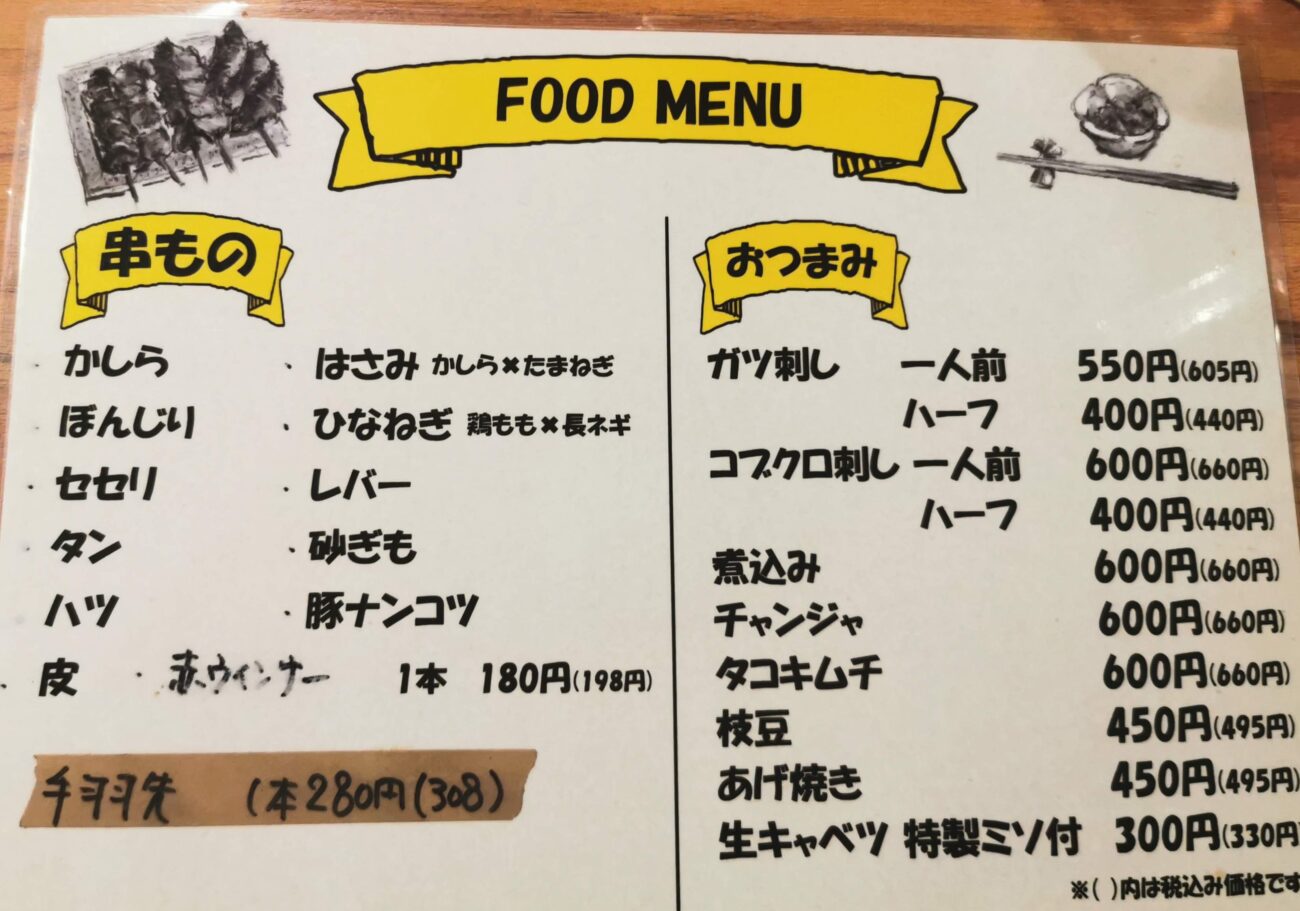 FOOD MENU
串もの
・かしら ・はさみ かしら×たまねぎ
ぼんじり ・ひなねぎ 鶏もも×長ネギ
・セセリ ・レバー
・タン ・砂ぎも
ハツ ・豚ナンコツ
・皮 ・赤ウィンナー 1本 180円(198円)
手羽先 1本280円(308)
おつまみ
ガツ刺し 一人前 550円(605円)
ハーフ 400円(440円)
コブクロ刺し 一人前 600円(660円)
ハーフ 400円(440円)
煮込み 600円(660円)
チャンジャ 600円(660円)
タコキムチ 600円(660円)
枝豆 450円(495円)
あげ焼き 450円(495円)
生キャベツ 特製ミソ付 300円(330円)
※( )内は税込み価格です